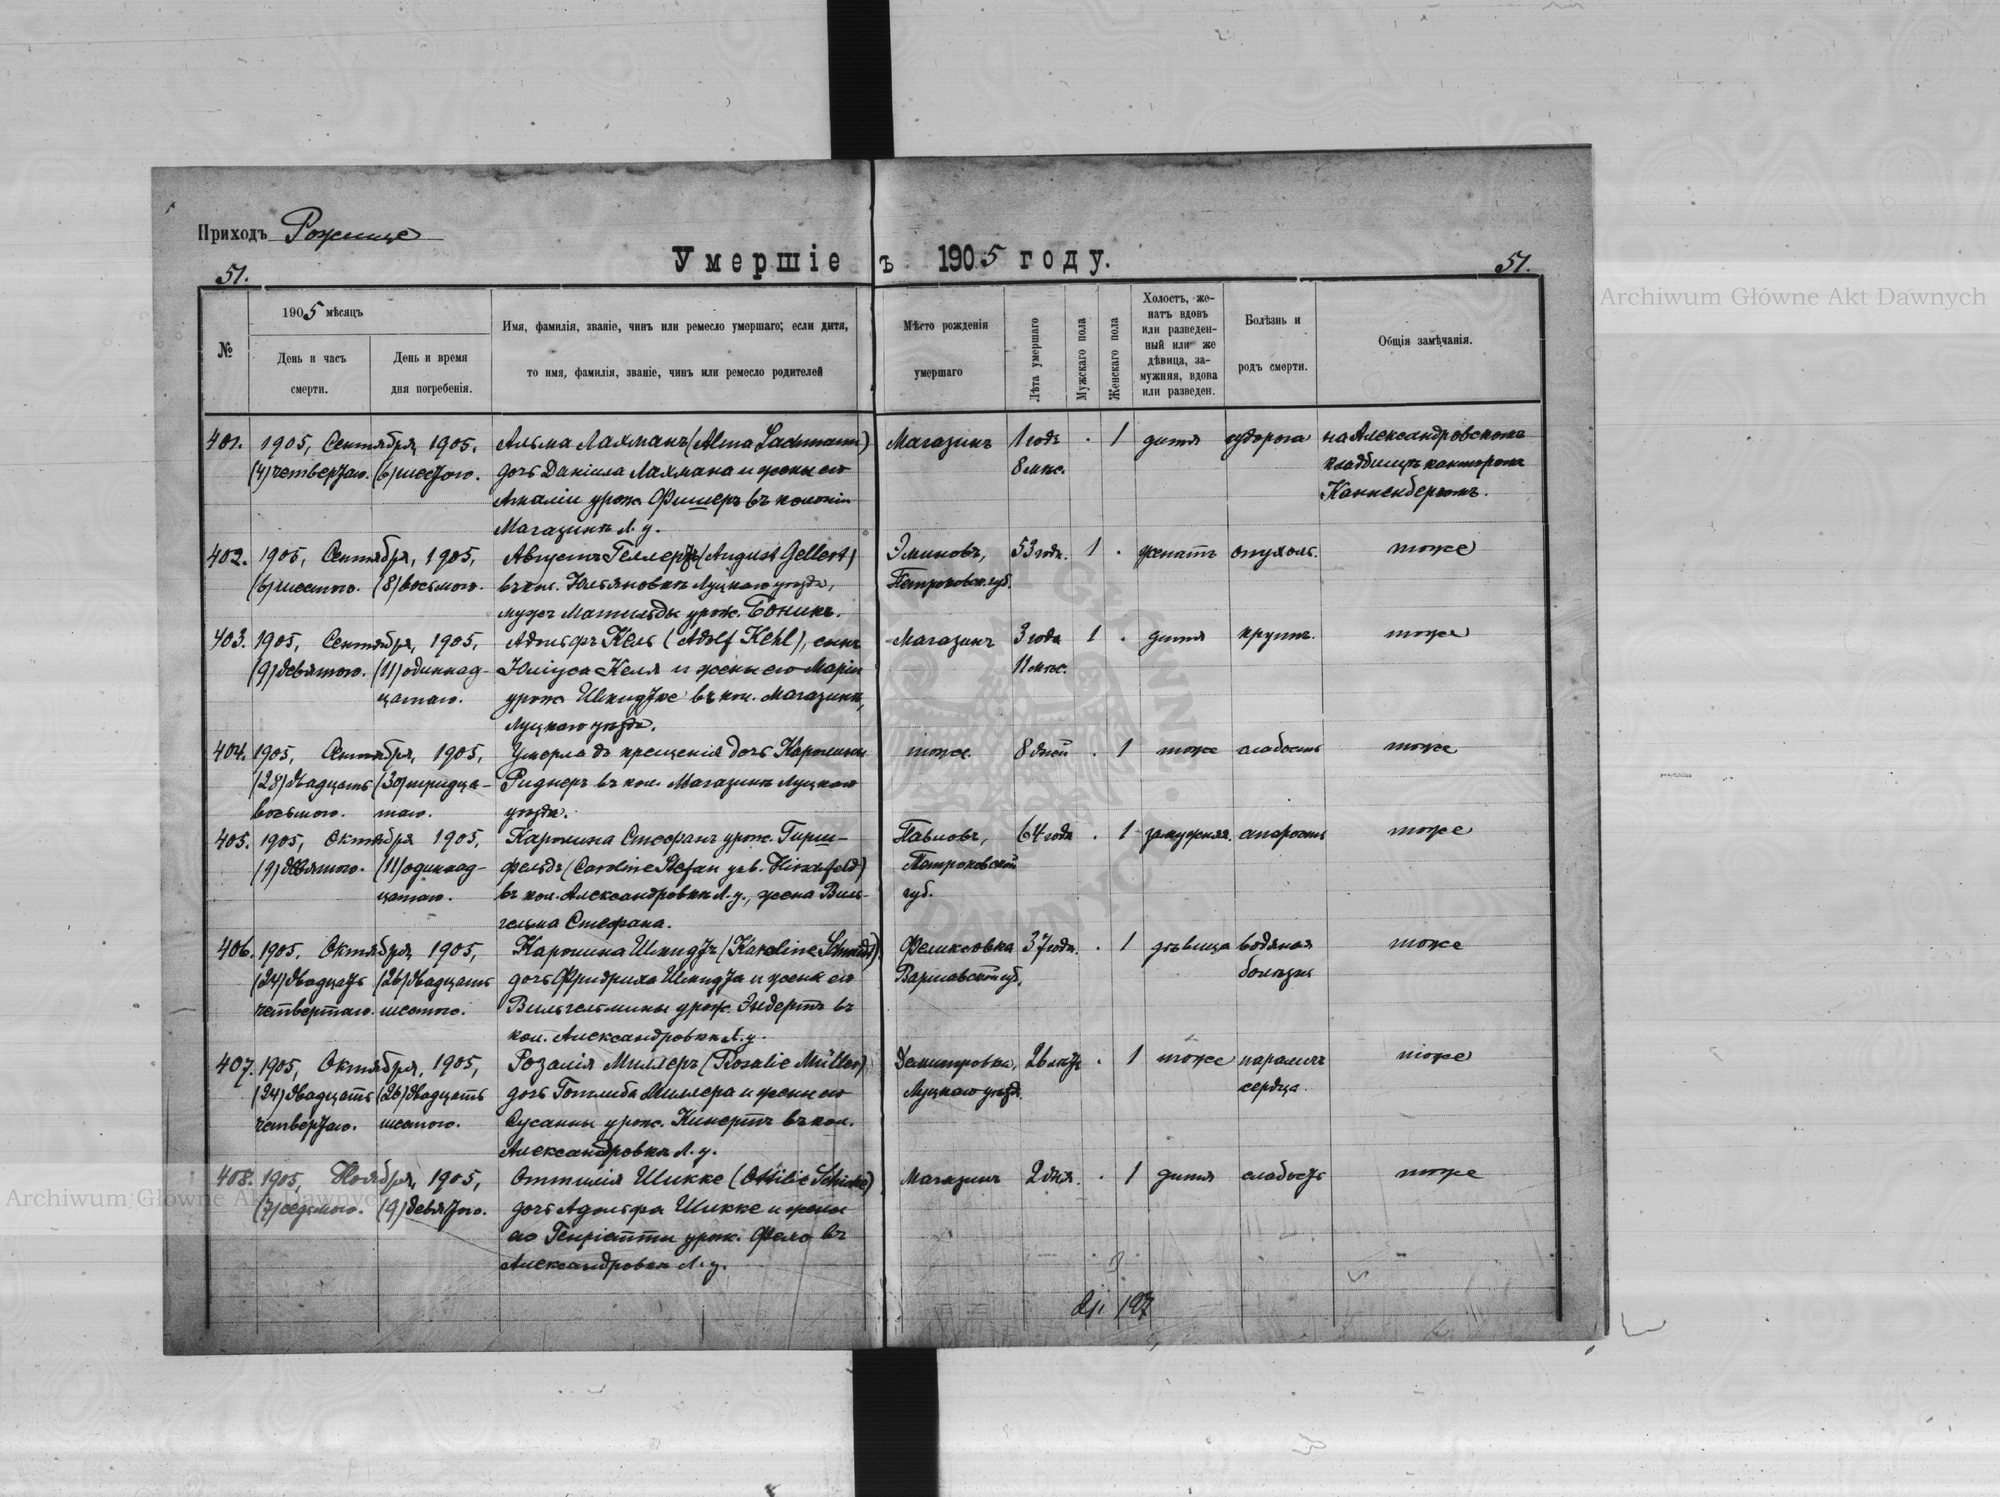 Приходъ Рожище
Умершіе въ 1905 году.
51.
51.
№
1905 мѣсяцъ
День и часъ смерти.
День и время дня погребенія.
Имя, фамилія, званіе, чинъ или ремесло умершаго; если дитя,
то имя, фамилія, званіе, чинъ или ремесло родителей
Мѣсто рожденія умершаго
Лѣта умершаго
Мужскаго пола
Женскаго пола
Холостъ, же-
натъ вдовъ
или разведен-
ный или же
дѣвица, за-
мужняя, вдова
или разведен.
Болѣзнь и
родъ смерти.
Общія замѣчанія.
401. 1905, Сентября, 1905, Альма Лахманъ (Alma Lachmann) Магазинъ 1 годъ . 1 дитя судорога на Александровскомъ
(4) четвертаго. (6) шестого. дочь Даніила Лахмана и жены его 8 мѣс. кладбищѣ канторомъ
Амаліи урож. Фишеръ въ колоніи Канненбергомъ.
Магазинѣ Л. у.
402. 1905, Сентября, 1905, Августъ Геллертъ (August Gellert) 53 год. 1 . женатъ опухоль. тоже
(6) шестого. (8) восьмого. въ кол. Ульяновкѣ Луцкаго уѣзда, Петроковск. губ.
мужъ Матильды урож. Боникъ.
403. 1905, Сентября, 1905, Адольфъ Кель (Adolf Kehl), сынъ Магазинъ 3 года 1 . дитя крупъ. тоже
(9) девятаго. (11) одиннад- Юліуса Келя и жены его Маріи 11 мѣс.
цатаго. урож. Шмидтке въ кол. Магазинѣ,
Луцкаго уѣзда.
404. 1905, Сентября, 1905, Умерла до крещенія дочь Каролины тоже. 8 дней . 1 тоже слабость тоже
(28) двадцать (30) тридца- Риднеръ въ кол. Магазинѣ Луцкаго
восьмого. таго. уѣзда.
405. 1905, Октября 1905, Каролина Стефанъ урож. Гирш- Павловъ, 64 года . 1 замужняя. старость тоже
(9) девятаго. (11) одиннад- фельдъ (Caroline Stefan geb. Hirschfeld) Петроковской
цатаго. въ кол. Александровкѣ Л. у., жена Виль- губ.
гельма Стефана.
406. 1905, Октября, 1905, Каролина Шмидтъ (Karoline Schmidt) Феликсовка 37 года. . 1 дѣвица водяная тоже
(24) двадцать (26) двадцать дочь Фридриха Шмидта и жены его Варшавской губ. болѣзнь
четвертаго. шестого. Вильгельмины урож. Эндертъ въ
кол. Александровкѣ Л. у.
407. 1905, Октября, 1905, Розалія Миллеръ (Rosalie Müller) 26 лѣтъ . 1 тоже параличъ тоже
(24) двадцать (26) двадцать дочь Готлиба Миллера и жены его Луцкаго уѣзд. сердца.
четвертаго. шестого. Сусанны урож. Кинертъ въ кол.
Александровкѣ Л. у.
408. 1905, Ноября, 1905, Оттилія Шикке (Ottilie Schicke) Магазинъ 2 дня. . 1 дитя слабость тоже
(7) седьмого. (9) девятаго. дочь Адольфа Шикке и жены
его Генріетты урож. въ
Александровкѣ Л. у.
197
Archiwum Główne Akt Dawnych
Archiwum Główne Akt Dawnych